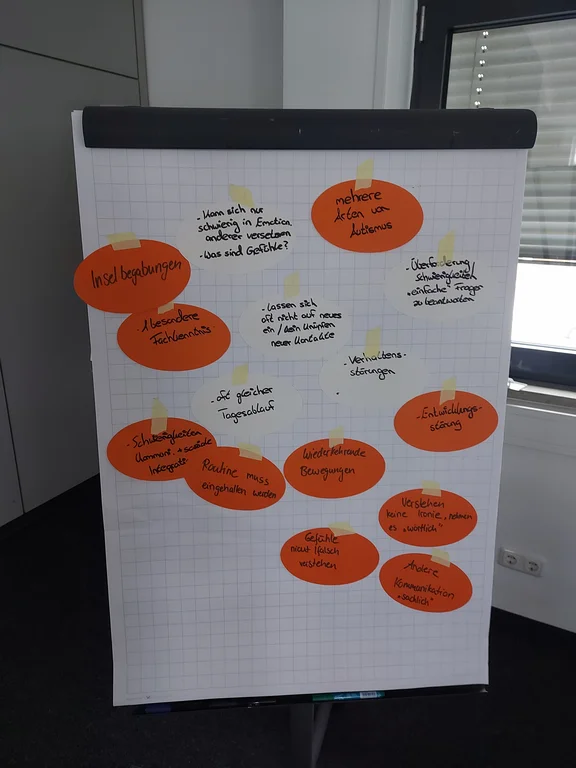 - Kann sich nur
schwierig in Emotion
anderer versetzen
- Was sind Gefühle?
mehrere
Arten von
Autismus
Inselbegabungen
- Überforderung
schwierigkeiten
"einfache" Fragen
zu beantworten
- 1 besondere
Fachkenntnis
- Lassen sich
oft nicht auf neues
ein / kein
neuer Kontakte
- Verhaltens-
störungen
-
- oft gleicher
Tagesablauf
- Entwicklungs-
störung
- Schwierigkeiten
Kommuni. + soziale
Integrati.
Routine muss
eingehalten werden
Wiederkehrende
Bewegungen
Verstehen
keine Ironie, nehmen
es "wörtlich"
Gefühle
nicht / falsch
verstehen
Andere
Kommunikation
"sachlich"